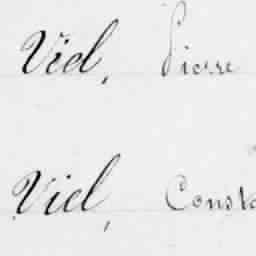 Viel, Pierre
Viel, Const